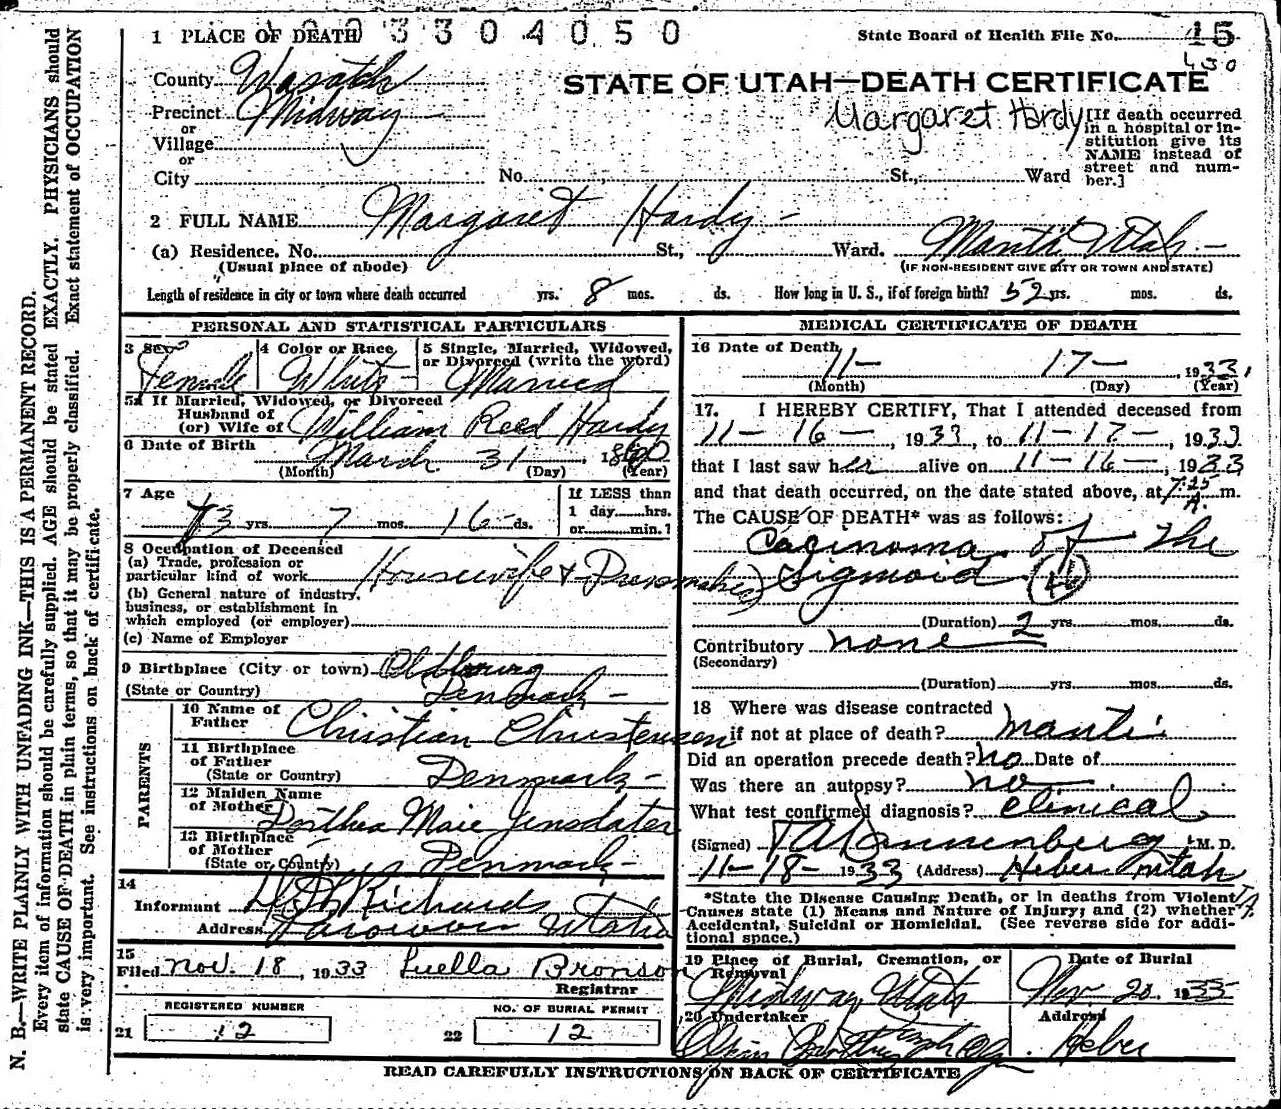 N. B.—WRITE PLAINLY WITH UNFADING INK—THIS IS A PERMANENT RECORD.
Every item of information should be carefully supplied. AGE should be stated EXACTLY. PHYSICIANS should
state CAUSE OF DEATH in plain terms, so that it may be properly classified. Exact statement of OCCUPATION
is very important. See instructions on back of certificate.
3304050
1 PLACE OF DEATH
State Board of Health File No. 15
430
County Wasatch
STATE OF UTAH—DEATH CERTIFICATE
Precinct Midway
or
Village
or
City
Margaret Hardy
[If death occurred
in a hospital or in-
stitution give its
NAME instead of
street and num-
ber.]
No. St., Ward
2 FULL NAME Margaret Hardy
(a) Residence. No. St., Ward. Manti Utah
(Usual place of abode) (IF NON-RESIDENT GIVE CITY OR TOWN AND STATE)
Length of residence in city or town where death occurred yrs. 8 mos. ds. How long in U. S., if of foreign birth? 52 yrs. mos. ds.
PERSONAL AND STATISTICAL PARTICULARS
3 Sex Female
4 Color or Race White
5 Single, Married, Widowed,
or Divorced (write the word)
Married
5a If Married, Widowed, or Divorced
Husband of
(or) Wife of William Reed Hardy
6 Date of Birth
March 31 1860
(Month) (Day) (Year)
7 Age
73 yrs. 7 mos. 16 ds.
If LESS than
1 day hrs.
or min.?
8 Occupation of Deceased
(a) Trade, profession or
particular kind of work Housewife & Dressmaker
(b) General nature of industry,
business, or establishment in
which employed (or employer)
(c) Name of Employer
9 Birthplace (City or town)
(State or Country) Denmark
PARENTS
10 Name of
Father Christian Christensen
11 Birthplace
of Father
(State or Country) Denmark
12 Maiden Name
of Mother Dorthea Marie Jensdater
13 Birthplace
of Mother
(State or Country) Denmark
14
Informant Richards
Address Parowan Utah
15
Filed Nov. 18, 1933 Luella Bronson
Registrar
REGISTERED NUMBER
21 12
NO. OF BURIAL PERMIT
22 12
MEDICAL CERTIFICATE OF DEATH
16 Date of Death
11— 17— 1933.
(Month) (Day) (Year)
17. I HEREBY CERTIFY, That I attended deceased from
11—16—, 1933, to 11—17—, 1933
that I last saw her alive on 11—16—, 1933
and that death occurred, on the date stated above, at 7:25 A. m.
The CAUSE OF DEATH* was as follows:
Carcinoma of the
Sigmoid (46)
(Duration) 2 yrs. mos. ds.
Contributory none
(Secondary)
(Duration) yrs. mos. ds.
18 Where was disease contracted
if not at place of death? Manti
Did an operation precede death? no Date of
Was there an autopsy? no
What test confirmed diagnosis? Clinical
(Signed) Dannenberg M. D.
11—18—1933 (Address) Heber Utah
*State the Disease Causing Death, or in deaths from Violent
Causes state (1) Means and Nature of Injury; and (2) whether
Accidental, Suicidal or Homicidal. (See reverse side for addi-
tional space.)
19 Place of Burial, Cremation, or
Removal
Midway, Utah
Date of Burial
Nov 20. 1933
20 Undertaker
Address
Heber
READ CAREFULLY INSTRUCTIONS ON BACK OF CERTIFICATE